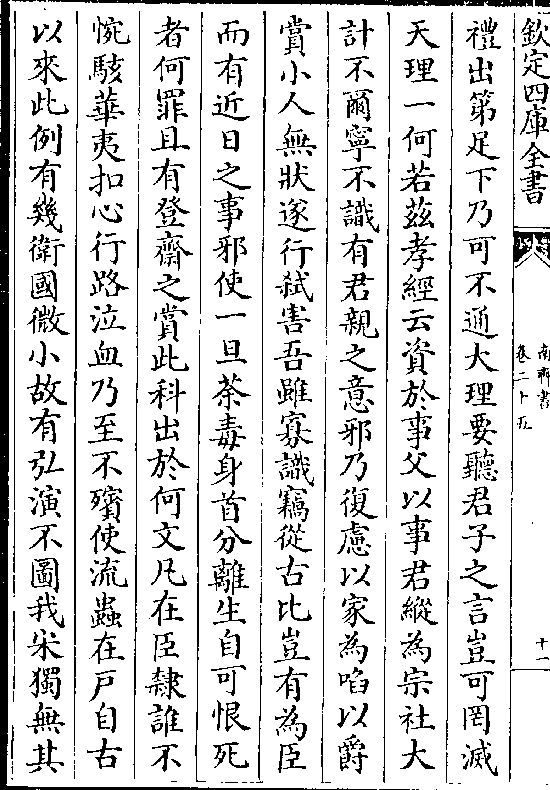 欽定四庫全書
南齊書
卷二十五
十一
禮出第足下乃可不通大理要聽君子之言豈可罔滅
天理一何若茲孝經云資於事父以事君縱為宗社大
計不爾寧不識有君親之意邪乃復慮以家為啗以爵
賞小人無狀遂行弑害吾雖寡識竊從古比豈有為臣
而有近日之事邪使一旦荼毒身首分離生自可恨死
者何罪且有登齋之賞此科出於何文凡在臣隸誰不
惋駭華夷扣心行路泣血乃至不殯使流蟲在戸自古
以來此例有幾衛國微小故有弘演不圖我宋獨無其